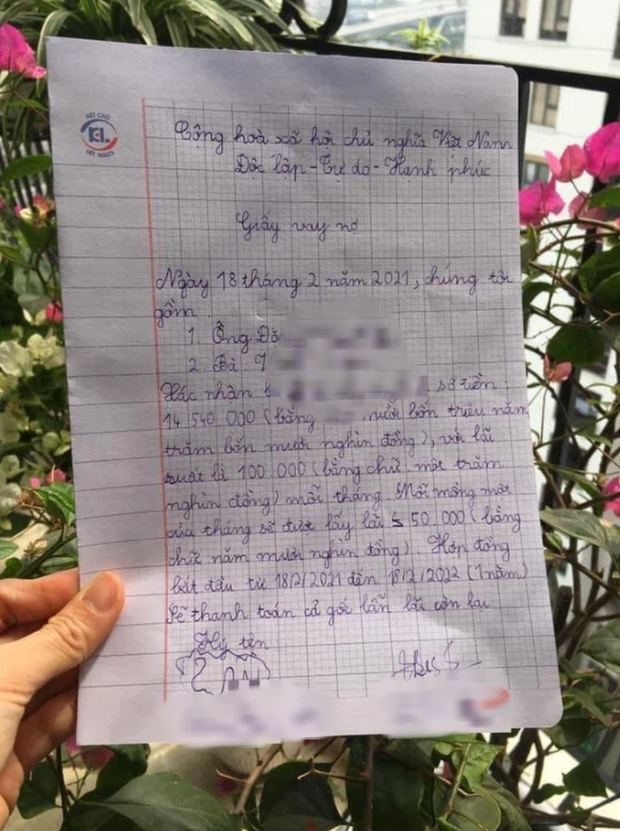 HẾT CHỮ
KL
HẾT NGƯỜI
Cộng hoà xã hội chủ nghĩa Việt Nam
Độc lập - Tự do - Hạnh phúc
Giấy vay nợ
Ngày 18 tháng 2 năm 2021, chúng tôi
gồm
1. Ông Đặ
2. Bà
Xác nhận số tiền:
14.540.000 (bằng mười bốn triệu năm
trăm bốn mươi nghìn đồng), với lãi
suất là 100.000 (bằng chữ một trăm
nghìn đồng) mỗi tháng. Mỗi mồng một
của tháng sẽ được lấy lãi 50.000 (bằng
chữ năm mươi nghìn đồng). Hợp đồng
bắt đầu từ 18/2/2021 đến 18/2/2022 (1 năm)
Sẽ thanh toán cả gốc lẫn lãi còn lại
Ký tên